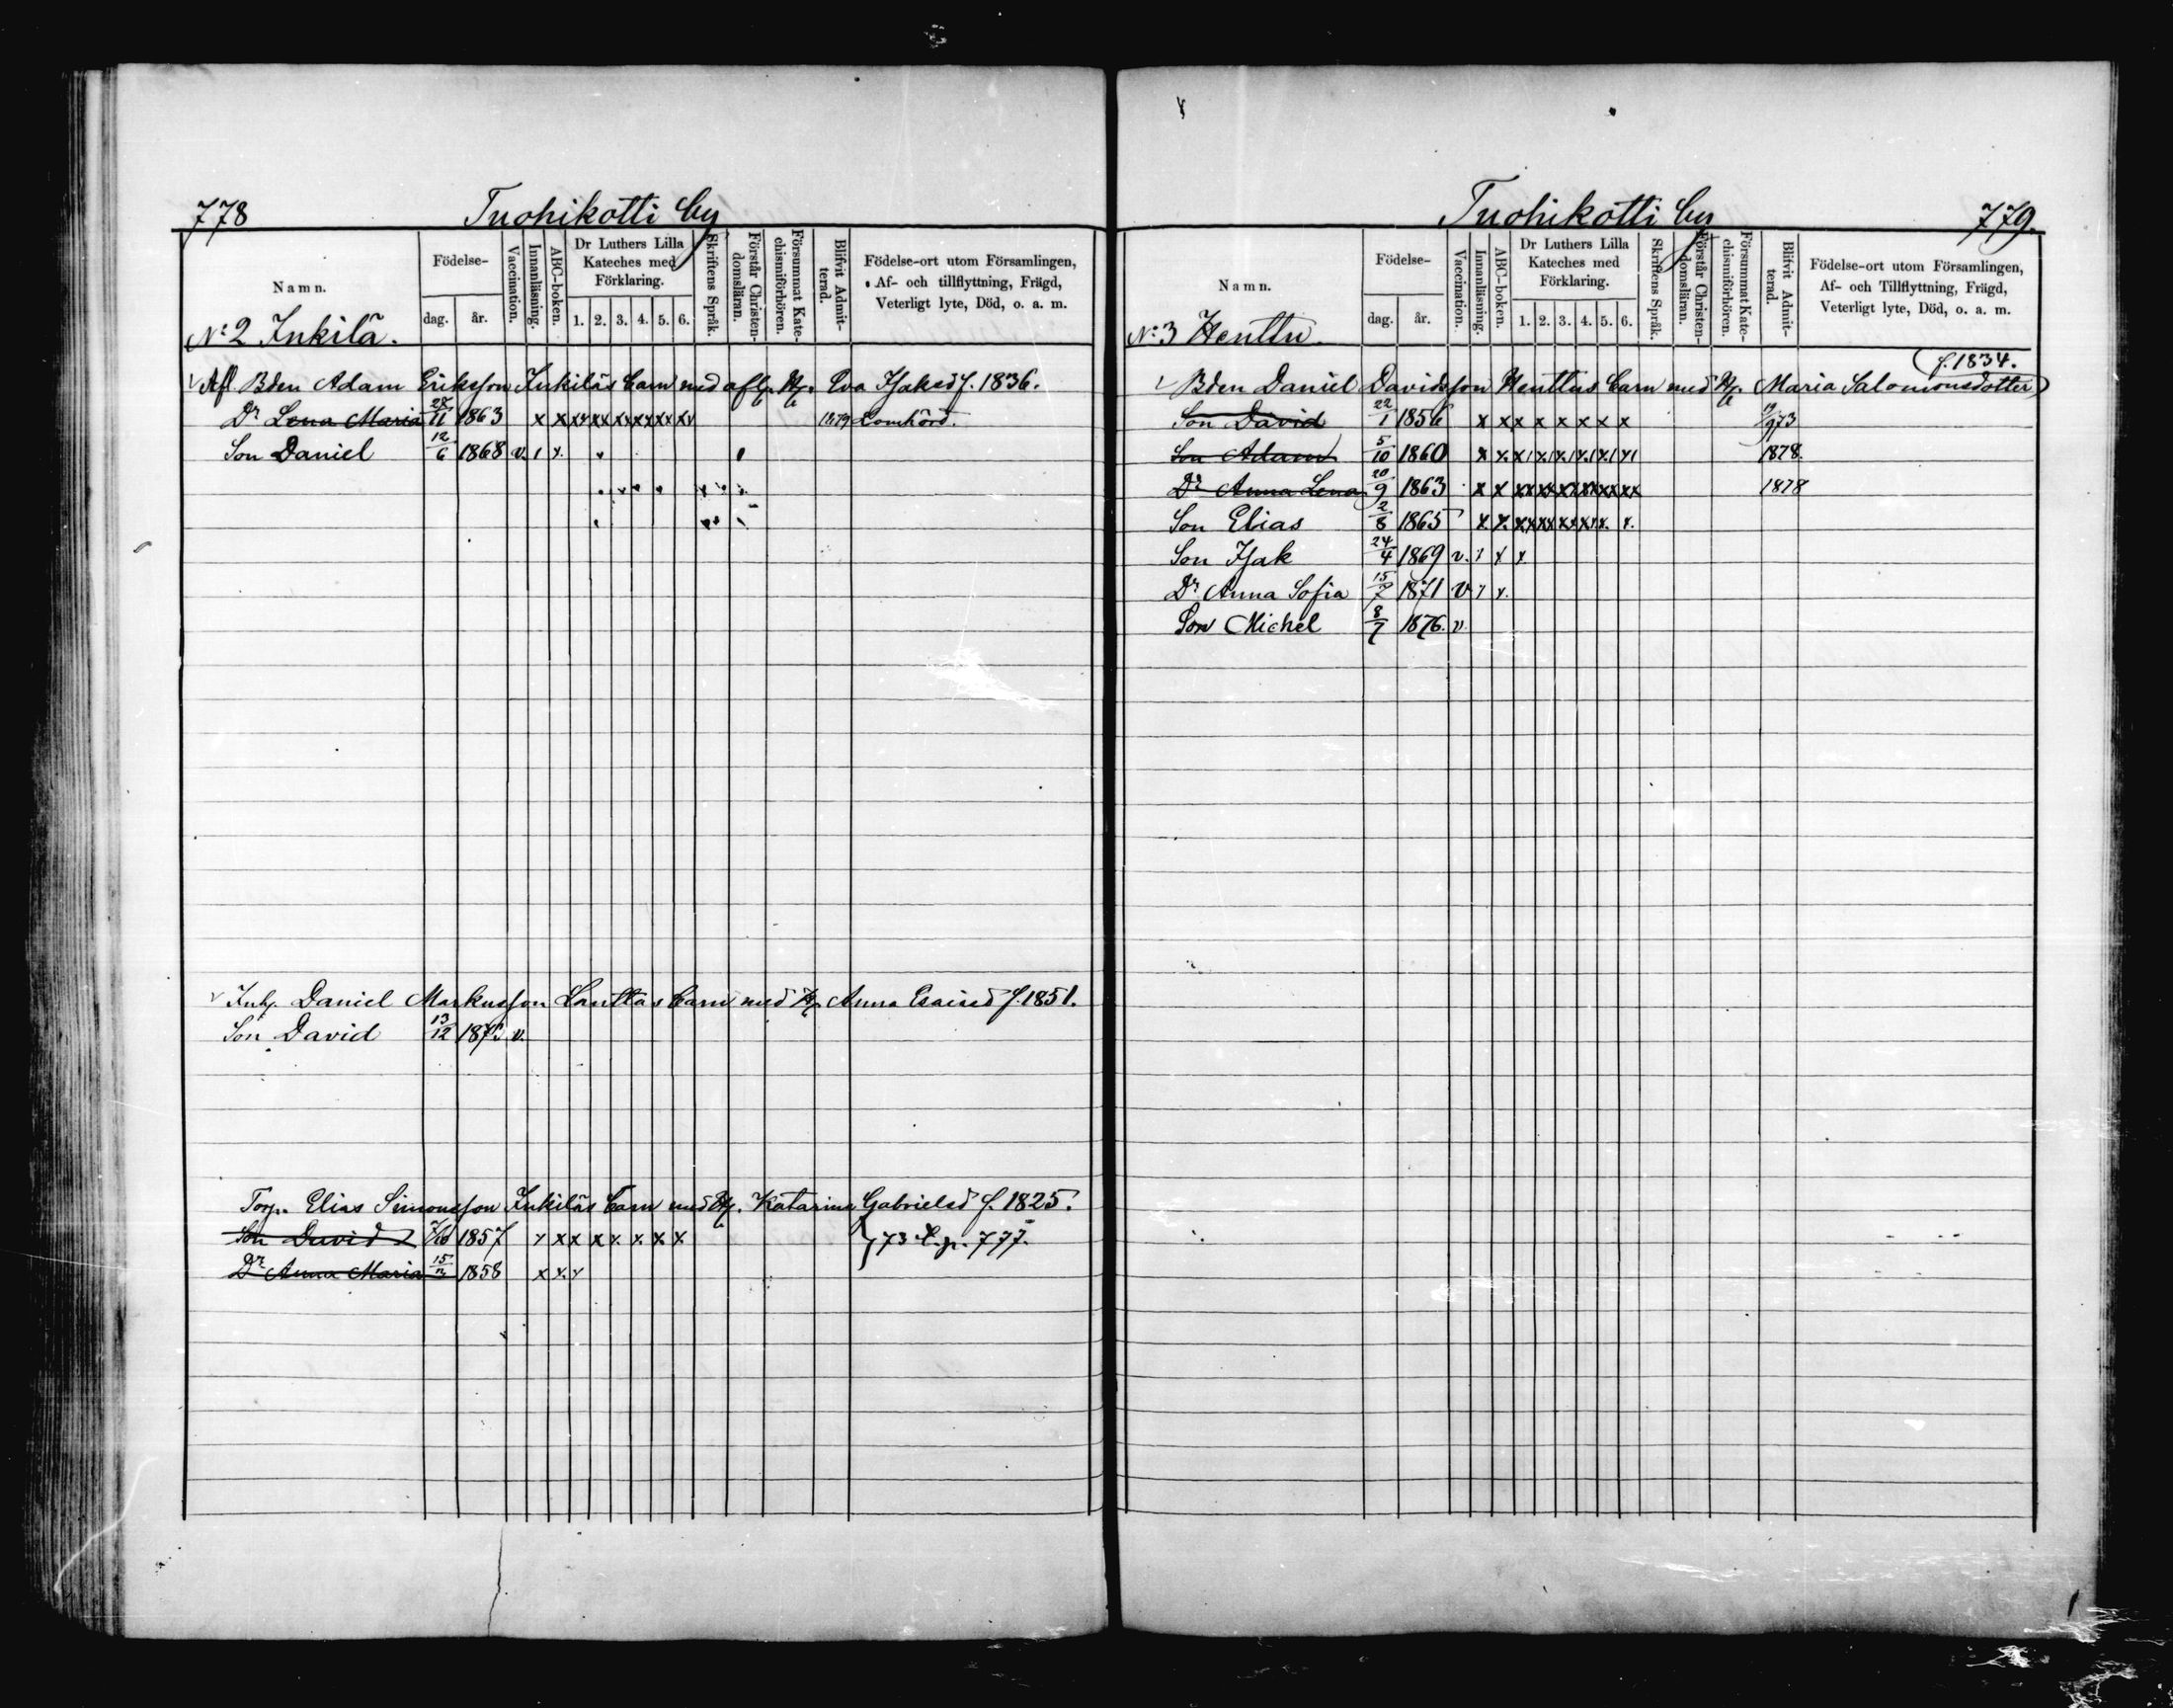 778 Tuohikotti by
Namn. Födelse- dag. år. Vaccination. Innanläsning. ABC-boken. Dr Luthers Lilla Kateches med Förklaring. 1. 2. 3. 4. 5. 6. Skriftens Språk. Förstår Christendomsläran. Försummat Katechismiförhören. Blifvit Admitterad. Födelse-ort utom Församlingen, Af- och tillflyttning, Frägd, Veterligt lyte, Död, o. a. m.
No 2 Inkilä.
Afl. Bden Adam Eriksson Inkiläs barn med afl. H. Eva Isaksd f. 1836.
Dr Lena Maria 11 1863 x x xx xx xx xx xx xx 1879 Lomhörd.
Son Daniel 12/6 1868 v. 1 x.
Inh. Daniel Markusson Lanttas barn med H. Anna Esaisd f. 1851.
Son David 13/12 v.
Torp. Elias Simonsson Inkiläs barn med H. Katarina Gabrielsd f. 1825.
Son David 7/10 1857 x x x x x x x x } 73 L. p. 777.
Dr Anna Maria 1858 x x x
Tuohikotti by 779.
Namn. Födelse- dag. år. Vaccination. Innanläsning. ABC-boken. Dr Luthers Lilla Kateches med Förklaring. 1. 2. 3. 4. 5. 6. Skriftens Språk. Förstår Christendomsläran. Försummat Katechismiförhören. Blifvit Admitterad. Födelse-ort utom Församlingen, Af- och Tillflyttning, Frägd, Veterligt lyte, Död, o. a. m.
No 3 Henttu.
f. 1834.
Bden Daniel Davidsson Henttus barn med H. Maria Salomonsdotter
Son David 22/1 1856 x x x x x x x x 73
Son Adam 5/10 1860 x x x1 x1 x1 x1 x1 x1 1878.
Dr Anna Lena 20/9 1863 x x xx xx xx xx xx xx 1878
Son Elias 2/8 1865 x. x. xx xx xx xx x. x.
Son Isak 24/4 1869 v. x x x
Dr Anna Sofia 15/2 1871 v x x.
Son Michel 8/7 1876. v.